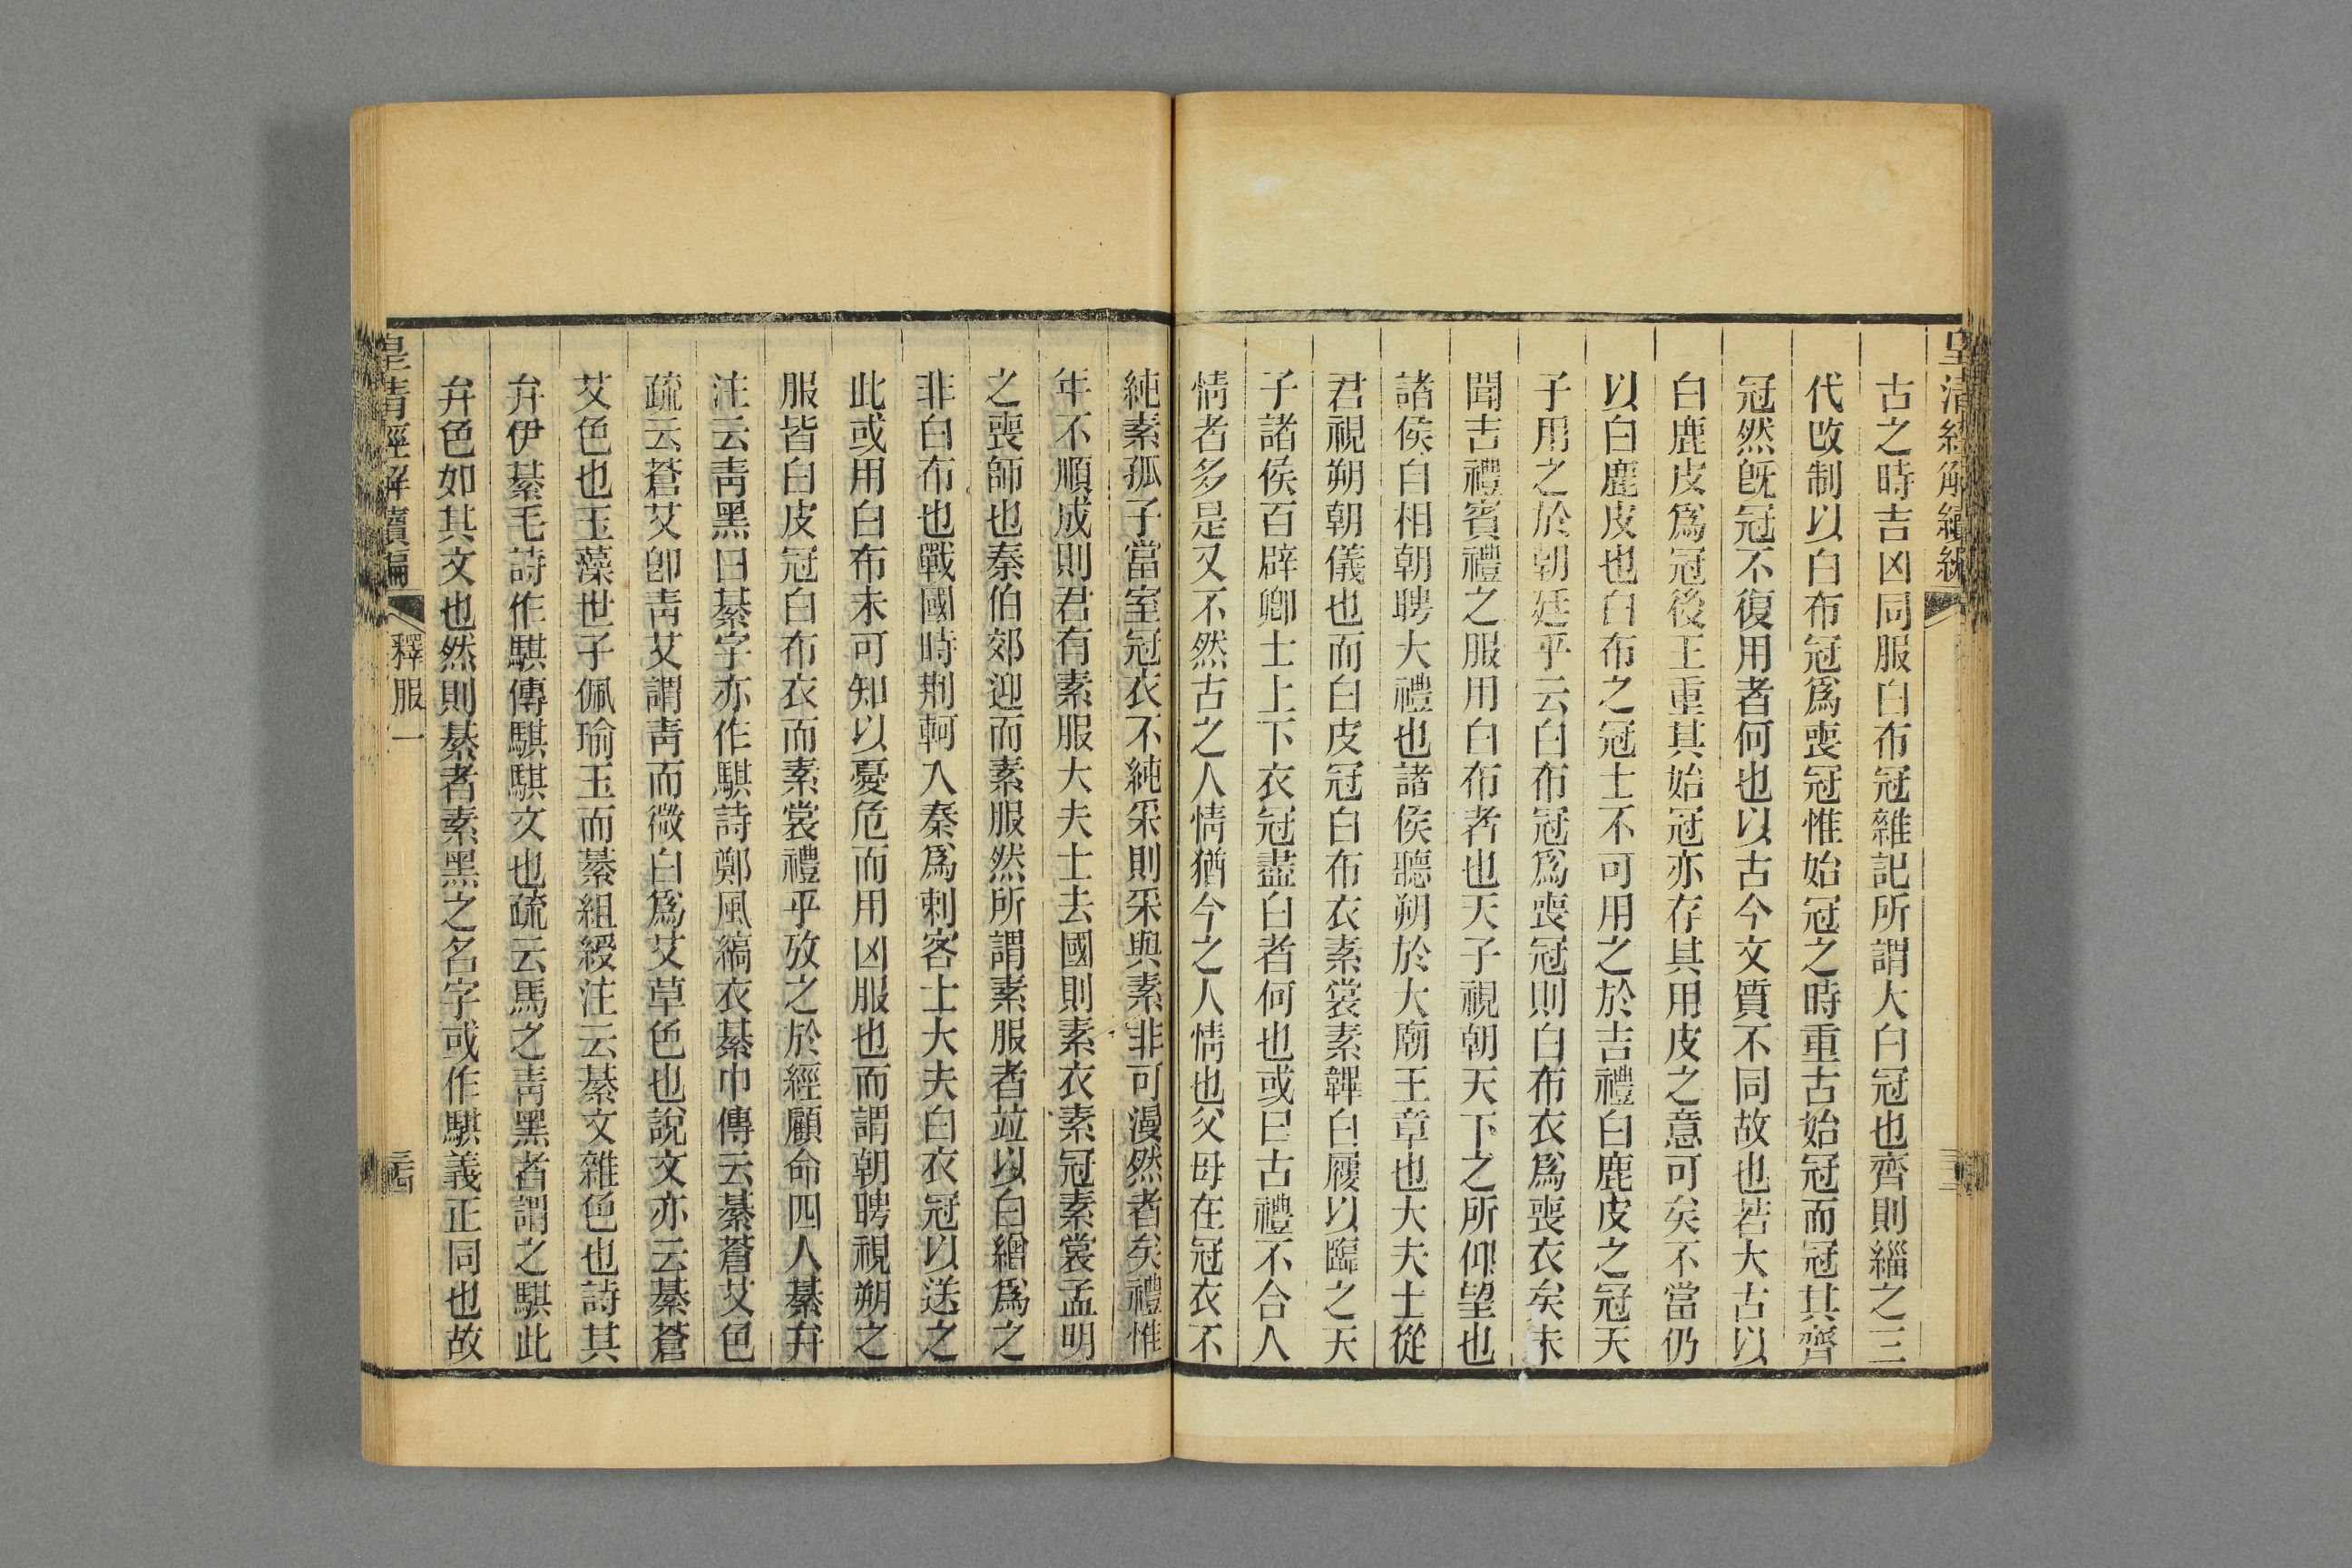 皇清經解續編
古之時吉凶同服白布冠雜記所謂大白冠也齊則緇之三
代改制以白布冠爲喪冠惟始冠之時重古始冠而冠其齊
冠然旣冠不復用者何也以古今文質不同故也若大古以
白鹿皮爲冠後王重其始冠亦存其用皮之意可矣不當仍
以白鹿皮也白布之冠士不可用之於吉禮白鹿皮之冠天
子用之於朝廷乎云白布冠爲喪冠則白布衣爲喪衣矣未
聞吉禮賓禮之服用白布者也天子視朝天下之所仰望也
諸侯自相朝聘大禮也諸侯聽朔於大廟王章也大夫士從
君視朔朝儀也而白皮冠白布衣素裳素韠白屨以臨之天
子諸侯百辟卿士上下衣冠盡白者何也或曰古禮不合人
情者多是又不然古之人情猶今之人情也父母在冠衣不
純素孤子當室冠衣不純采則采與素非可漫然者矣禮惟
年不順成則君有素服大夫士去國則素衣素冠素裳孟明
之喪師也秦伯郊迎而素服然所謂素服者竝以白繒爲之
非白布也戰國時荆軻入秦爲刺客士大夫白衣冠以送之
此或用白布未可知以憂危而用凶服也而謂朝聘視朔之
服皆白皮冠白布衣而素裳禮乎攷之於經顧命四人綦弁
注云靑黑曰綦字亦作騏詩鄭風縞衣綦巾傳云綦蒼艾色
疏云蒼艾卽靑艾謂靑而微白爲艾草色也說文亦云綦蒼
艾色也玉藻世子佩瑜玉而綦組綬注云綦文雜色也詩其
弁伊綦毛詩作騏傳騏騏文也疏云馬之靑黑者謂之騏此
弁色如其文也然則綦者素黑之名字或作騏義正同也故
皇清經解續編
釋服一